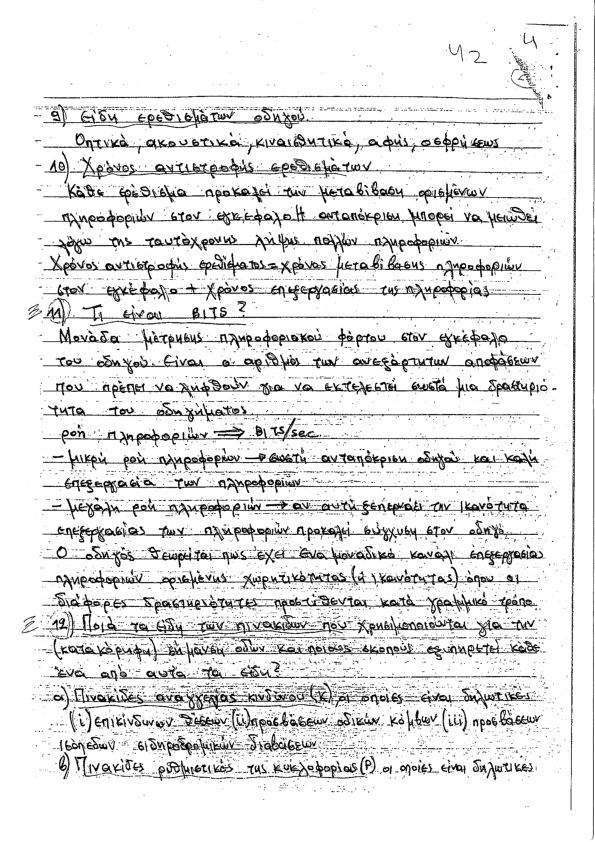 42
4
9) Είδη ερεθισμάτων οδηγού.
Οπτικά, ακουστικά, κιναισθητικά, αφής, οσφρήσεως
10) Χρόνος αντιστροφής ερεθισμάτων
Κάθε ερέθισμα προκαλεί την μεταβίβαση ορισμένων
πληροφοριών στον εγκέφαλο. Η ανταπόκριση μπορεί να μειωθεί
λόγω της ταυτόχρονης λήψης πολλών πληροφοριών.
Χρόνος αντιστροφής ερεθίσματος = χρόνος μεταβίβασης πληροφοριών
στον εγκέφαλο + χρόνος επεξεργασίας της πληροφορίας
11) Τι είναι BITS?
Μονάδα μέτρησης πληροφοριακού φόρτου στον εγκέφαλο
του οδηγού. Είναι ο αριθμός των ανεξάρτητων αποφάσεων
που πρέπει να ληφθούν για να εκτελεστεί σωστά μια δραστηριό-
τητα του οδηγήματος
ροή πληροφοριών ⇒ BITS/sec
- μικρή ροή πληροφοριών → σωστή ανταπόκριση οδηγού και καλή
επεξεργασία των πληροφοριών
- μεγάλη ροή πληροφοριών → αν αυτή ξεπερνάει την ικανότητα
επεξεργασίας των πληροφοριών προκαλεί σύγχυση στον οδηγό.
Ο οδηγός θεωρείται πως έχει ένα μοναδικό κανάλι επεξεργασίας
πληροφοριών ορισμένης χωρητικότητας (ή ικανότητας) όπου οι
διάφορες δραστηριότητες προστίθενται κατά γραμμικό τρόπο.
12) Ποιά τα είδη των πινακίδων που χρησιμοποιούνται για την
(κατακόρυφη) σήμανση οδών και ποιους σκοπούς εξυπηρετεί κάθε
ένα από αυτα τα είδη?
α) Πινακίδες αναγγελίας κινδύνου (Κ) οι οποίες είναι δηλωτικές
(i) επικίνδυνων θέσεων (ii) προσβάσεων οδικών κόμβων (iii) προσβάσεων
ισόπεδων σιδηροδρομικών διαβάσεων
β) Πινακίδες ρυθμιστικές της κυκλοφορίας (Ρ) οι οποίες είναι δηλωτικές